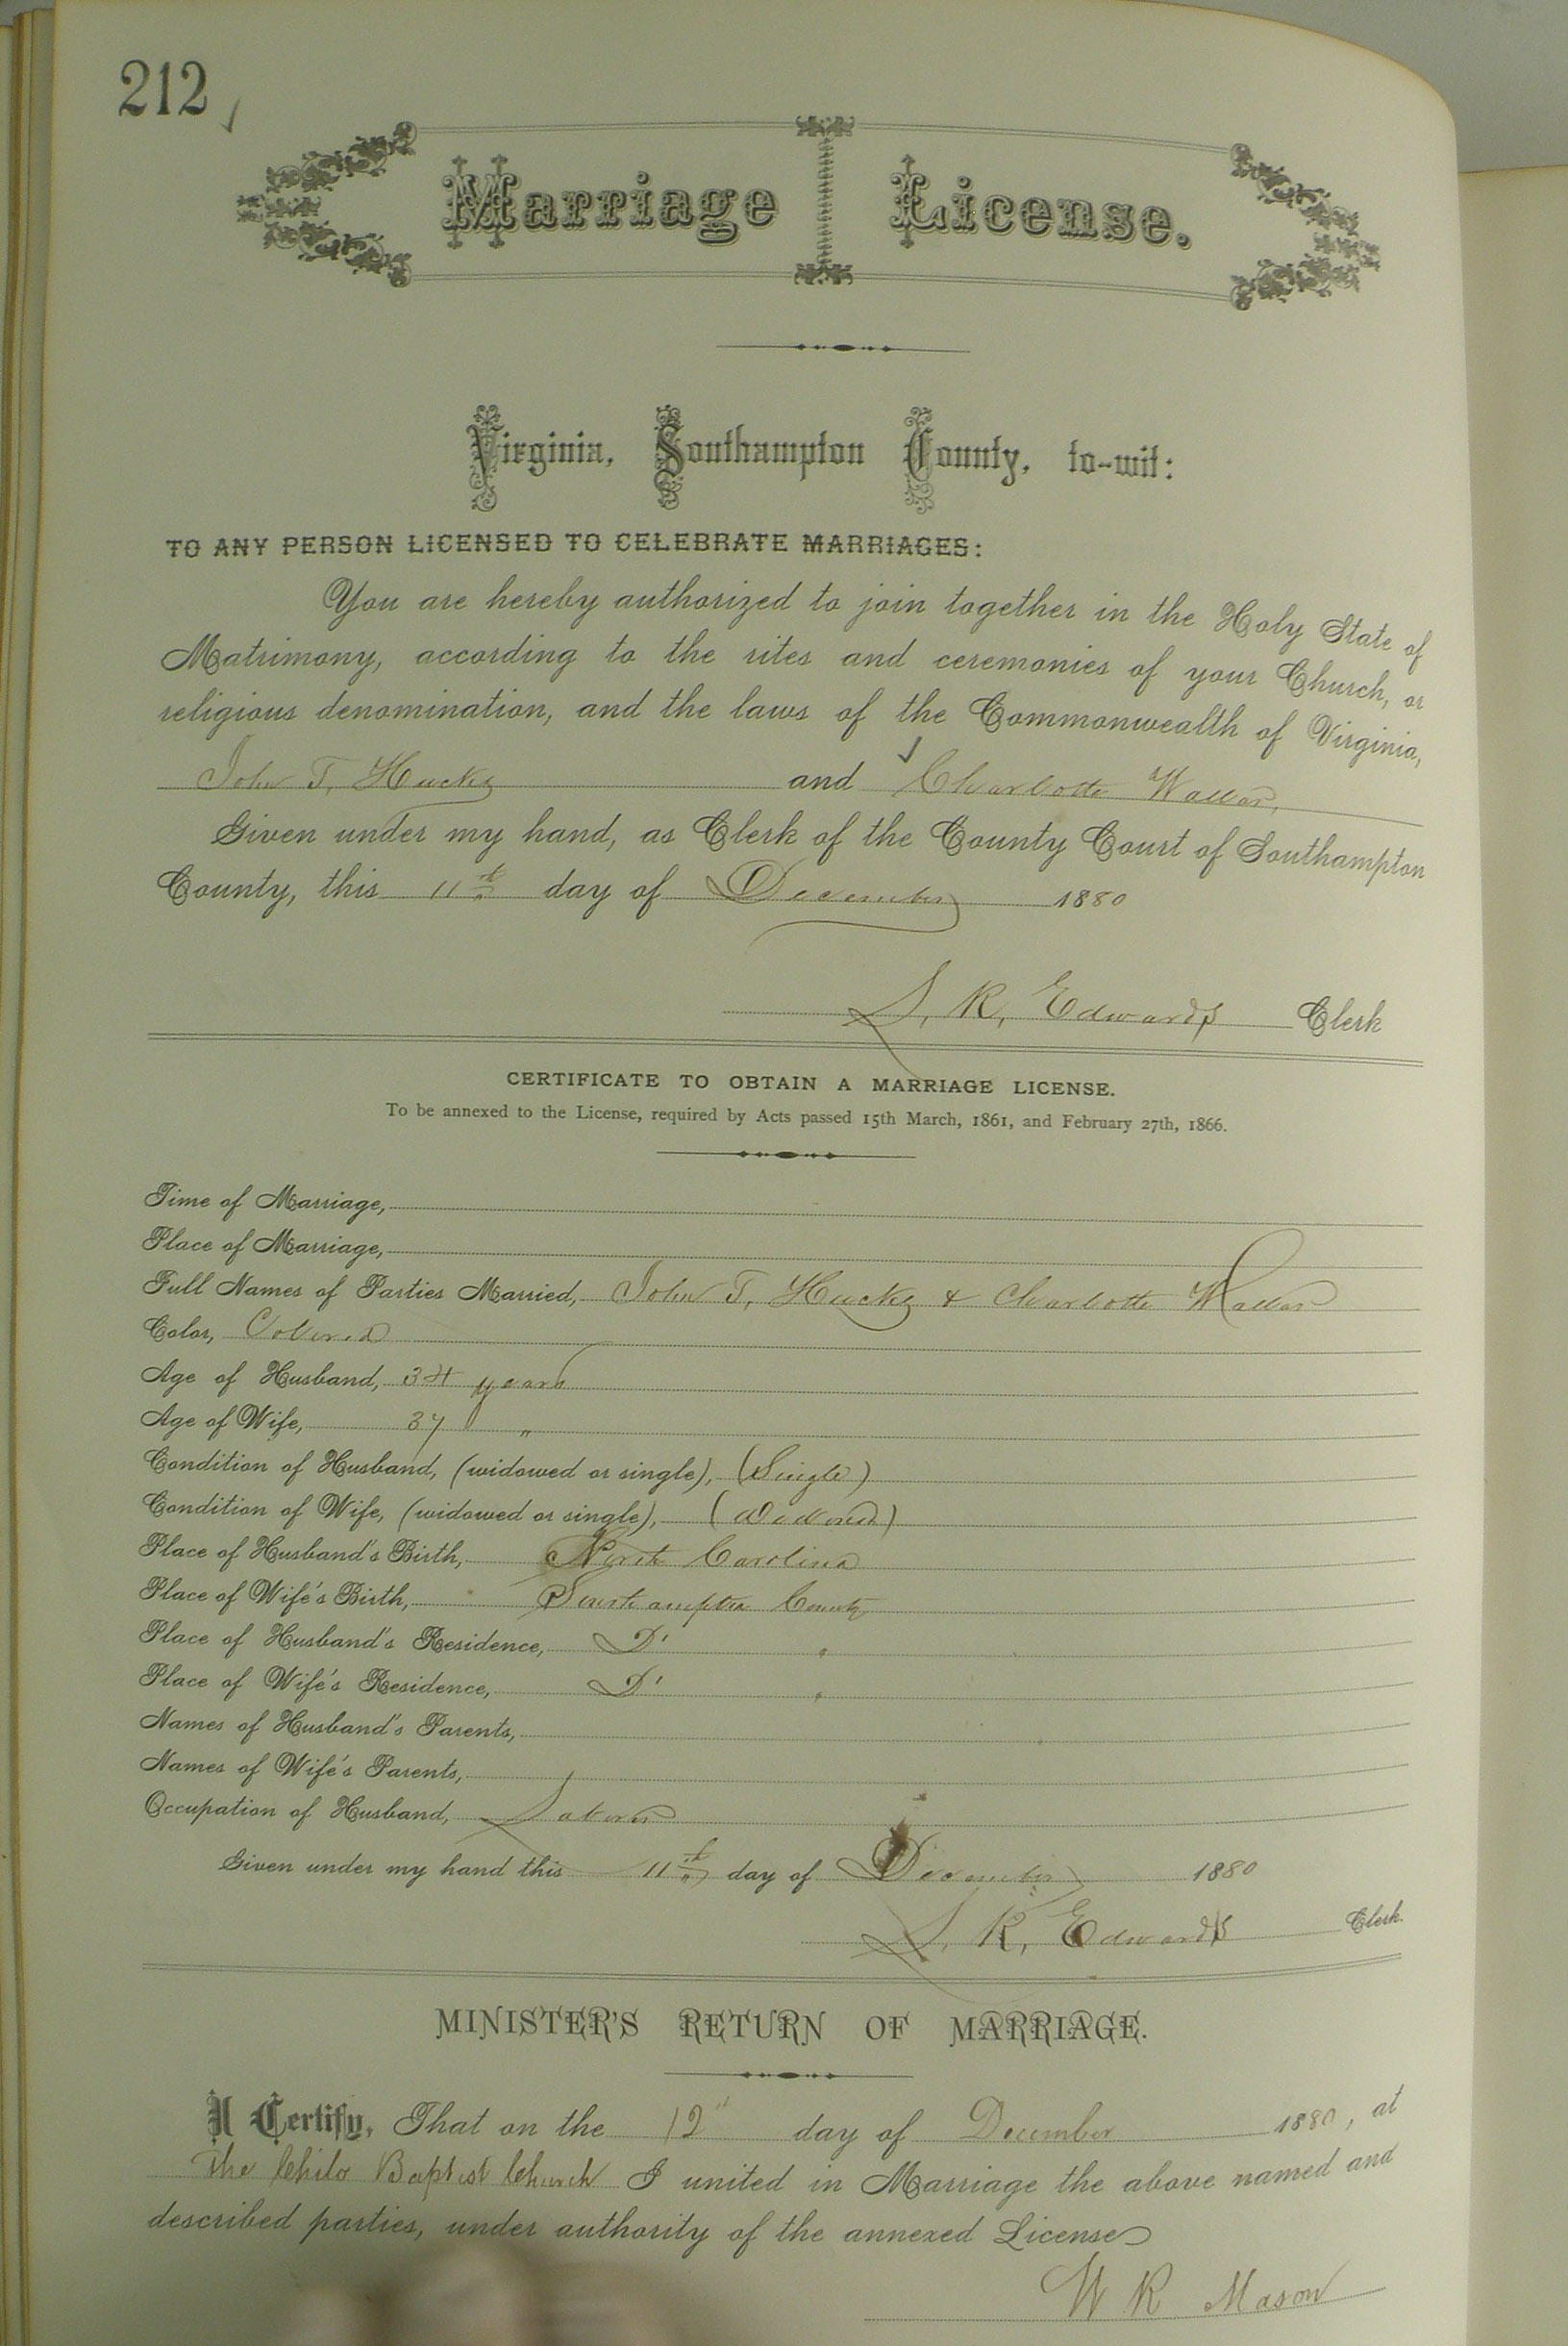 212
Marriage License.
Virginia, Southampton County, to-wit:
TO ANY PERSON LICENSED TO CELEBRATE MARRIAGES:
You are hereby authorized to join together in the Holy State of
Matrimony, according to the rites and ceremonies of your Church, or
religious denomination, and the laws of the Commonwealth of Virginia,
John T. and Charlotte
Given under my hand, as Clerk of the County Court of Southampton
County, this 11th day of December 1880
S. R. Edwards Clerk
CERTIFICATE TO OBTAIN A MARRIAGE LICENSE.
To be annexed to the License, required by Acts passed 15th March, 1861, and February 27th, 1866.
Time of Marriage,
Place of Marriage,
Full Names of Parties Married, John T. & Charlotte
Color, Colored
Age of Husband, 34 years
Age of Wife, 37 "
Condition of Husband, (widowed or single), (Single)
Condition of Wife, (widowed or single), (Widowed)
Place of Husband's Birth, North Carolina
Place of Wife's Birth, Southampton County
Place of Husband's Residence, Do "
Place of Wife's Residence, Do "
Names of Husband's Parents,
Names of Wife's Parents,
Occupation of Husband, Laborer
Given under my hand this 11th day of December 1880
S. R. Edwards Clerk.
MINISTER'S RETURN OF MARRIAGE.
I Certify, That on the 12th day of December 1880, at
The Shilo Baptist Church I united in Marriage the above named and
described parties, under authority of the annexed License
W R Mason